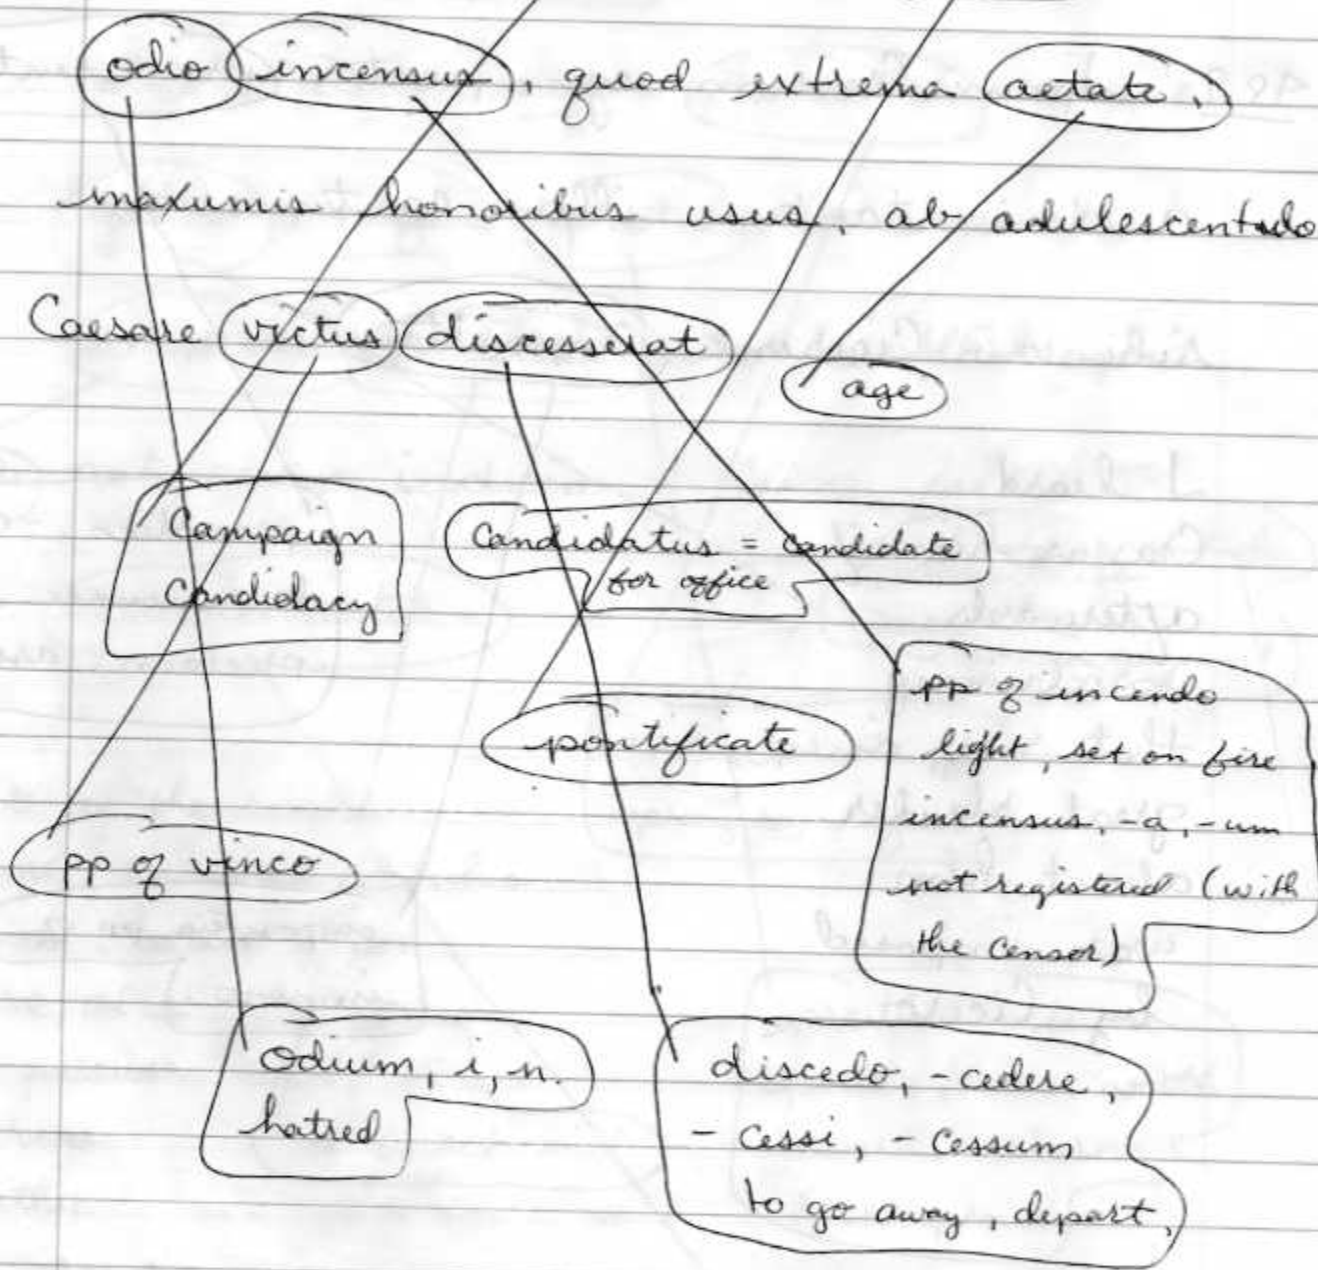 odio incensus, quod extrema aetate,
maxumis honoribus usus, ab adulescentulo
Caesare victus discesserat
age
Campaign
Candidacy
Candidatus = candidate
for office
pontificate
pp of incendo
light, set on fire
incensus, -a, -um
not registered (with
the censor)
pp of vinco
odium, i, n.
hatred
discedo, -cedere,
- cessi, - cessum
to go away, depart,